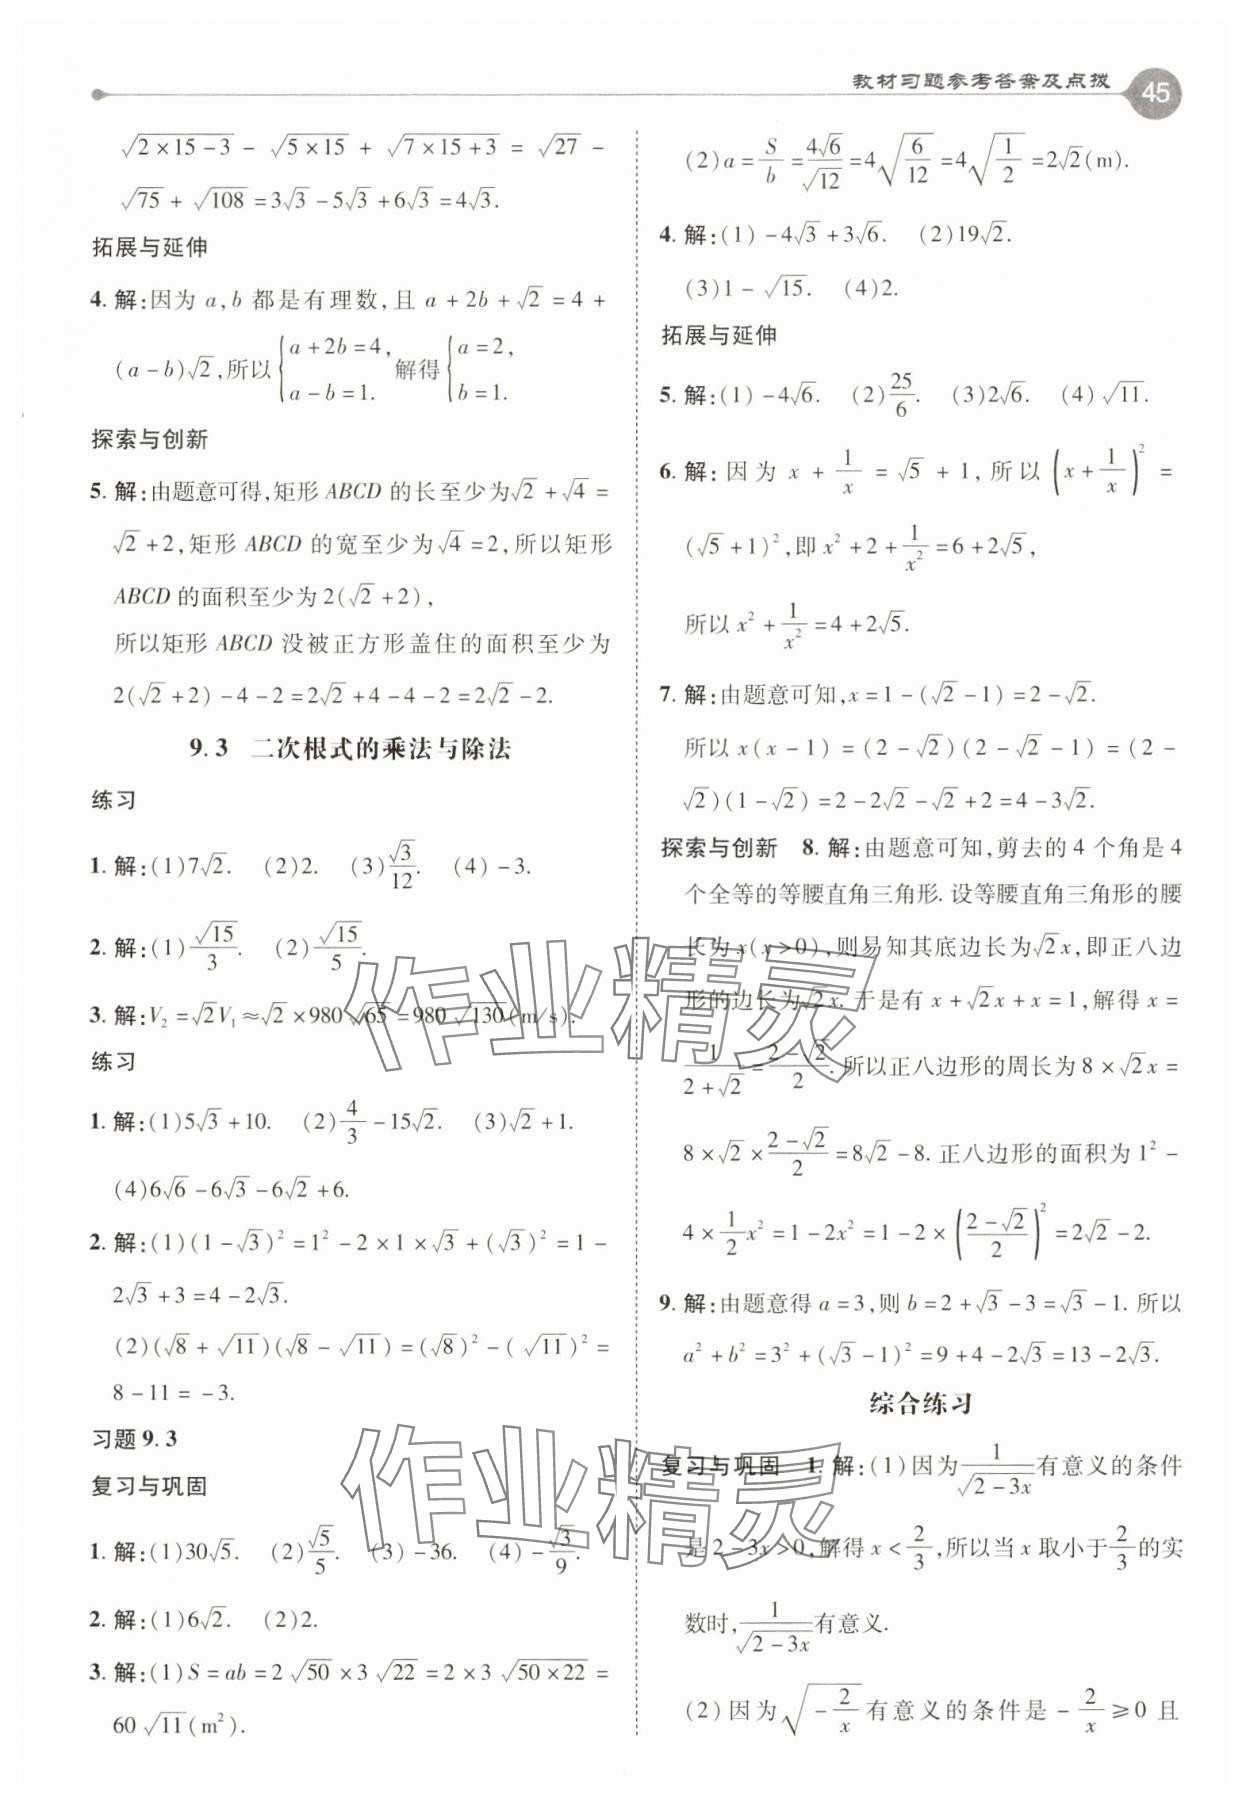 教材习题参考答案及点拨 45
√(2×15-3) - √(5×15) + √(7×15+3) = √27 -
√75 + √108 = 3√3 - 5√3 + 6√3 = 4√3.
拓展与延伸
4. 解:因为 a,b 都是有理数,且 a+2b+√2=4+
(a-b)√2,所以 {a+2b=4, a-b=1. 解得 {a=2, b=1.
探索与创新
5. 解:由题意可得,矩形 ABCD 的长至少为√2+√4=
√2+2,矩形 ABCD 的宽至少为√4=2,所以矩形
ABCD 的面积至少为 2(√2+2),
所以矩形 ABCD 没被正方形盖住的面积至少为
2(√2+2)-4-2=2√2+4-4-2=2√2-2.
9.3 二次根式的乘法与除法
练习
1. 解:(1)7√2. (2)2. (3)√3/12. (4)-3.
2. 解:(1)√15/3. (2)√15/5.
3. 解:V₂=√2V₁≈√2×980√65=980√130(m/s).
练习
1. 解:(1)5√3+10. (2)4/3-15√2. (3)√2+1.
(4)6√6-6√3-6√2+6.
2. 解:(1)(1-√3)²=1²-2×1×√3+(√3)²=1-
2√3+3=4-2√3.
(2)(√8+√11)(√8-√11)=(√8)²-(√11)²=
8-11=-3.
习题 9.3
复习与巩固
1. 解:(1)30√5. (2)√5/5. (3)-36. (4)-√3/9.
2. 解:(1)6√2. (2)2.
3. 解:(1)S=ab=2√50×3√22=2×3√(50×22)=
60√11(m²).
(2)a=S/b=4√6/√12=4√(6/12)=4√(1/2)=2√2(m).
4. 解:(1)-4√3+3√6. (2)19√2.
(3)1-√15. (4)2.
拓展与延伸
5. 解:(1)-4√6. (2)25/6. (3)2√6. (4)√11.
6. 解:因为 x+1/x=√5+1,所以(x+1/x)²=
(√5+1)²,即 x²+2+1/x²=6+2√5,
所以 x²+1/x²=4+2√5.
7. 解:由题意可知,x=1-(√2-1)=2-√2.
所以 x(x-1)=(2-√2)(2-√2-1)=(2-
√2)(1-√2)=2-2√2-√2+2=4-3√2.
探索与创新 8. 解:由题意可知,剪去的 4 个角是 4
个全等的等腰直角三角形. 设等腰直角三角形的腰
长为 x(x>0),则易知其底边长为√2x,即正八边
形的边长为√2x. 于是有 x+√2x+x=1,解得 x=
1/(2+√2)=(2-√2)/2. 所以正八边形的周长为 8×√2x=
8×√2×(2-√2)/2=8√2-8. 正八边形的面积为 1²-
4×1/2x²=1-2x²=1-2×((2-√2)/2)²=2√2-2.
9. 解:由题意得 a=3,则 b=2+√3-3=√3-1. 所以
a²+b²=3²+(√3-1)²=9+4-2√3=13-2√3.
综合练习
复习与巩固 1. 解:(1)因为1/√(2-3x)有意义的条件
是 2-3x>0,解得 x<2/3,所以当 x 取小于2/3的实
数时,1/√(2-3x)有意义.
(2)因为√(-2/x)有意义的条件是-2/x≥0 且
作业精灵
作业精灵